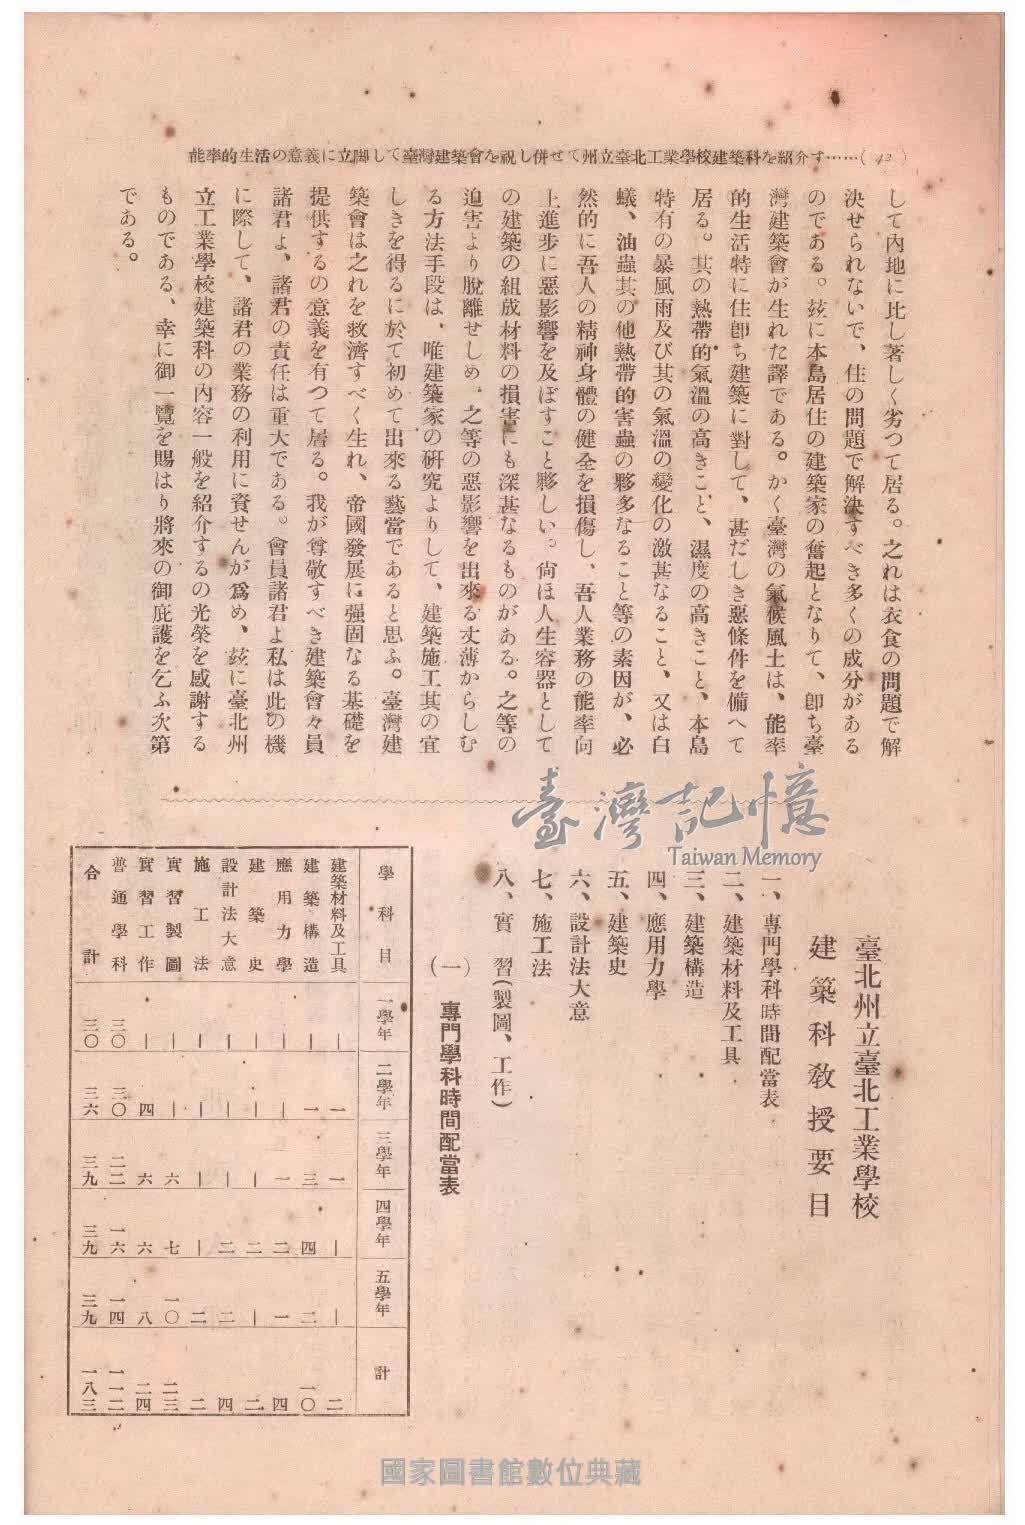 能率的生活の意義に立脚して臺灣建築會を祝し併せて州立臺北工業學校建築科を紹介す……( 42 )
して內地に比し著しく劣つて居る。之れは衣食の問題で解
決せられないで、住の問題で解決すべき多くの成分がある
のである。玆に本島居住の建築家の奮起となりて、卽ち臺
灣建築會が生れた譯である。かく臺灣の氣候風土は、能率
的生活特に住卽ち建築に對して、甚だしき惡條件を備へて
居る。其の熱帶的氣溫の高きこと、濕度の高きこと、本島
特有の暴風雨及び其の氣溫の變化の激甚なること、又は白
蟻、油蟲其の他熱帶的害蟲の夥多なること等の素因が、必
然的に吾人の精神身體の健全を損傷し、吾人業務の能率向
上進步に惡影響を及ぼすこと夥しい。尙ほ人生容器として
の建築の組成材料の損害にも深甚なるものがある。之等の
迫害より脫離せしめ、之等の惡影響を出來る丈薄からしむ
る方法手段は、唯建築家の硏究よりして、建築施工其の宜
しきを得るに於て初めて出來る藝當であると思ふ。臺灣建
築會は之れを救濟すべく生れ、帝國發展に强固なる基礎を
提供するの意義を有つて居る。我が尊敬すべき建築會々員
諸君よ、諸君の責任は重大である。會員諸君よ私は此の機
に際して、諸君の業務の利用に資せんが爲め、玆に臺北州
立工業學校建築科の內容一般を紹介するの光榮を感謝する
ものである、幸に御一覽を賜はり將來の御庇護を乞ふ次第
である。
臺灣記憶
Taiwan Memory
臺北州立臺北工業學校
建築科敎授要目
一、專門學科時間配當表
二、建築材料及工具
三、建築構造
四、應用力學
五、建築史
六、設計法大意
七、施工法
八、實習(製圖、工作)
(一) 專門學科時間配當表
學科目 一學年 二學年 三學年 四學年 五學年 計
建築材料及工具 | 一 一 | | 二
建築構造 | 一 三 四 二 一〇
應用力學 | | 一 二 一 四
建築史 | | | 二 | 二
設計法大意 | | | 二 二 四
施工法 | | | | 二 二
實習製圖 | | 六 七 一〇 二三
實習工作 | 四 六 六 八 二四
普通學科 三〇 三〇 二二 一六 一四 一一二
合計 三〇 三六 三九 三九 三九 一八三
國家圖書館數位典藏